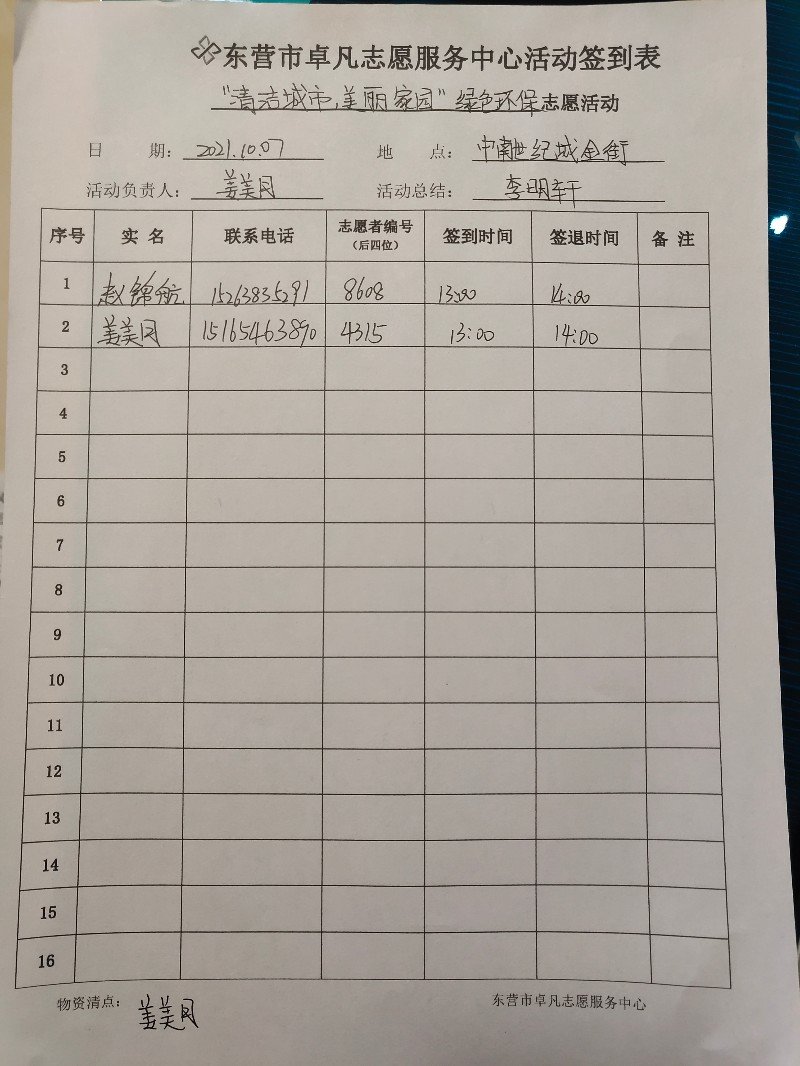 东营市卓凡志愿服务中心活动签到表
"清洁城市,美丽家园"绿色环保志愿活动
日 期: 2021.10.07 地 点: 中南世纪城金街
活动负责人: 姜美月 活动总结: 李明轩
序号 实 名 联系电话 志愿者编号 (后四位) 签到时间 签退时间 备 注
1 赵锦航 15263835291 8608 13:00 14:00
2 姜美月 15165463890 4315 13:00 14:00
3
4
5
6
7
8
9
10
11
12
13
14
15
16
物资清点: 姜美月 东营市卓凡志愿服务中心